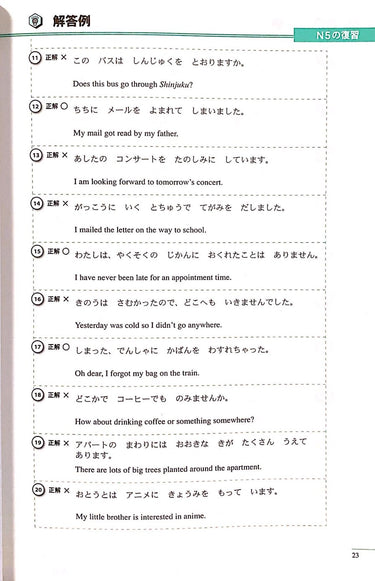 解答例
N5の復習
⑪ 正解 × この バスは しんじゅくを とおりますか。
Does this bus go through Shinjuku?
⑫ 正解 〇 ちちに メールを よまれて しまいました。
My mail got read by my father.
⑬ 正解 × あしたの コンサートを たのしみに しています。
I am looking forward to tomorrow's concert.
⑭ 正解 × がっこうに いく とちゅうで てがみを だしました。
I mailed the letter on the way to school.
⑮ 正解 〇 わたしは、やくそくの じかんに おくれたことは ありません。
I have never been late for an appointment time.
⑯ 正解 × きのうは さむかったので、どこへも いきませんでした。
Yesterday was cold so I didn't go anywhere.
⑰ 正解 〇 しまった、でんしゃに かばんを わすれちゃった。
Oh dear, I forgot my bag on the train.
⑱ 正解 × どこかで コーヒーでも のみませんか。
How about drinking coffee or something somewhere?
⑲ 正解 × アパートの まわりには おおきな きが たくさん うえて
あります。
There are lots of big trees planted around the apartment.
⑳ 正解 × おとうとは アニメに きょうみを もって います。
My little brother is interested in anime.
23